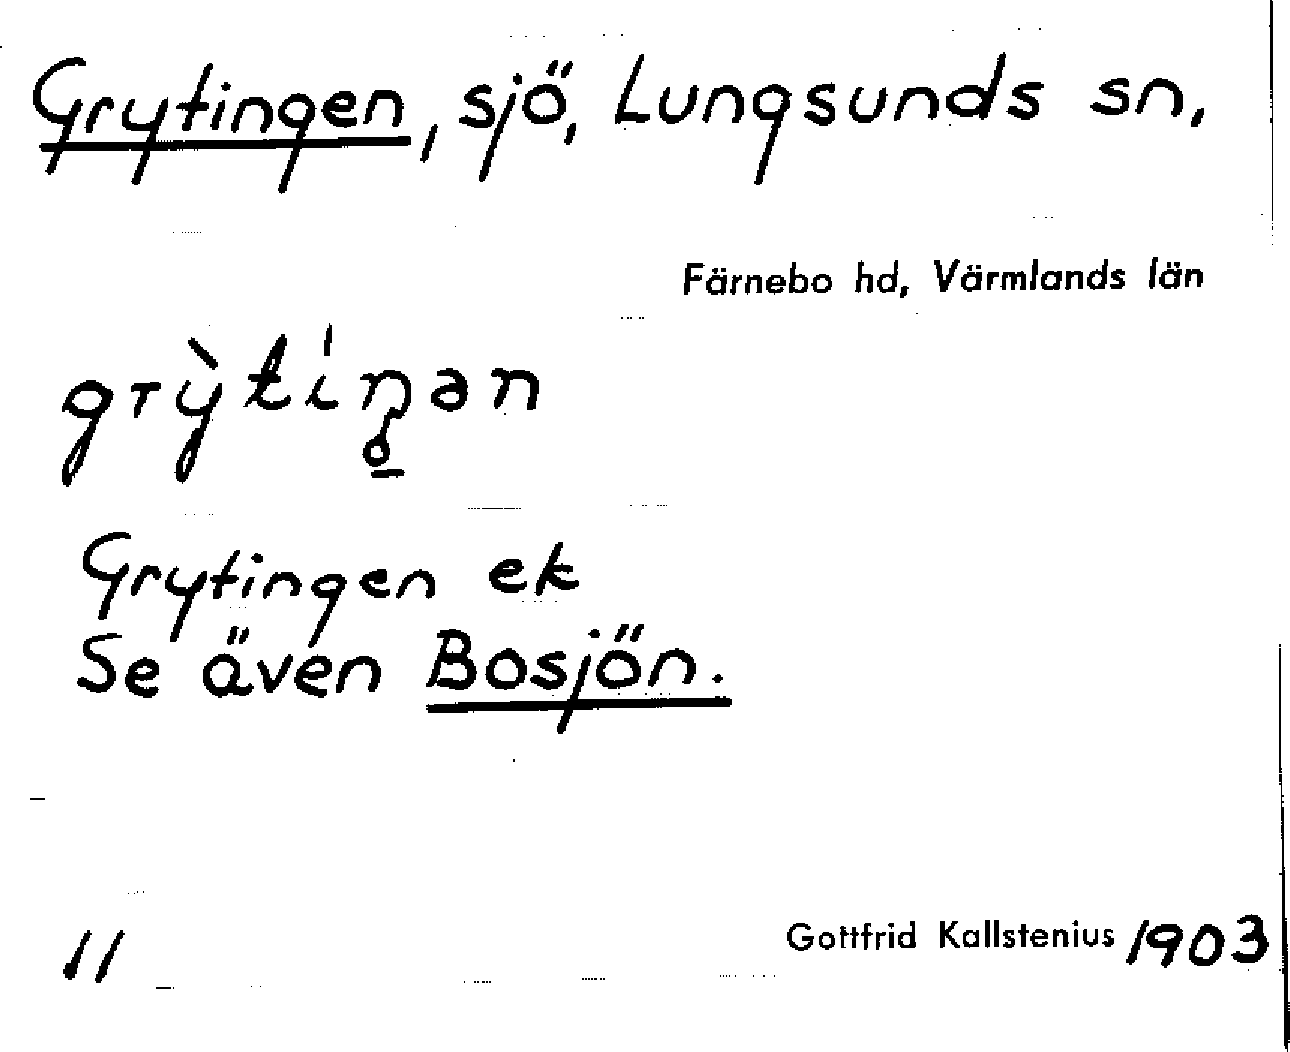 Grytingen, sjö, Lungsunds sn,
Färnebo hd, Värmlands län
grỳtíŋən
Grytingen ek
Se även Bosjön.
11
Gottfrid Kallstenius 1903